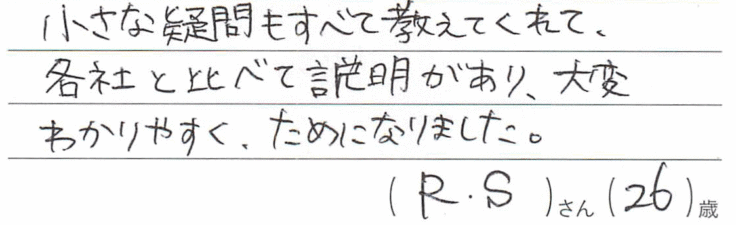 小さな疑問もすべて教えてくれて、
各社と比べて説明があり、大変
わかりやすく、ためになりました。
(R.S)さん(26)歳